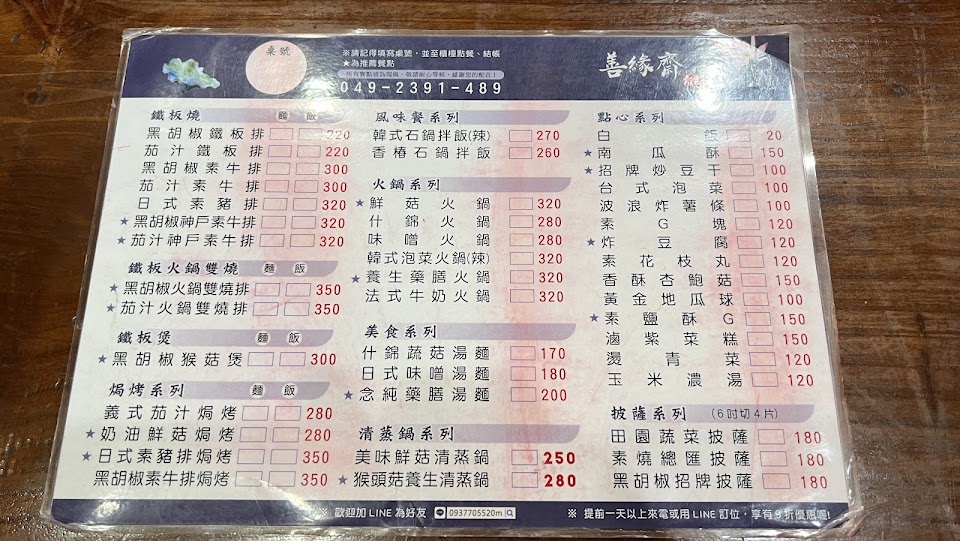 桌號
※請記得填寫桌號，並至櫃檯點餐、結帳
★為推薦餐點
所有餐點皆為現做，敬請耐心等候，感謝您的配合！
049-2391-489
善緣齋
鐵板燒 麵 飯
黑胡椒鐵板排 220
茄汁鐵板排 220
黑胡椒素牛排 300
茄汁素牛排 300
日式素豬排 320
★黑胡椒神戶素牛排 320
★茄汁神戶素牛排 320
鐵板火鍋雙燒 麵 飯
★黑胡椒火鍋雙燒排 350
★茄汁火鍋雙燒排 350
鐵板煲 麵 飯
★黑胡椒猴菇煲 300
焗烤系列 麵 飯
義式茄汁焗烤 280
★奶油鮮菇焗烤 280
★日式素豬排焗烤 350
黑胡椒素牛排焗烤 350
風味餐系列
韓式石鍋拌飯(辣) 270
香椿石鍋拌飯 260
火鍋系列
★鮮菇火鍋 320
什錦火鍋 280
味噌火鍋 280
韓式泡菜火鍋(辣) 320
★養生藥膳火鍋 320
法式牛奶火鍋 320
美食系列
什錦蔬菇湯麵 170
日式味噌湯麵 180
★念純藥膳湯麵 200
清蒸鍋系列
美味鮮菇清蒸鍋 250
★猴頭菇養生清蒸鍋 280
點心系列
白飯 20
★南瓜酥 150
★招牌炒豆干 100
台式泡菜 100
波浪炸薯條 100
素G塊 120
★炸豆腐 120
素花枝丸 120
香酥杏鮑菇 150
黃金地瓜球 100
★素鹽酥G 150
滷紫菜糕 150
燙青菜 120
玉米濃湯 120
披薩系列 (6吋切4片)
田園蔬菜披薩 180
素燒總匯披薩 180
黑胡椒招牌披薩 180
※ 歡迎加LINE為好友 0937705520m
※ 提前一天以上來電或用LINE訂位，享有9折優惠喔!